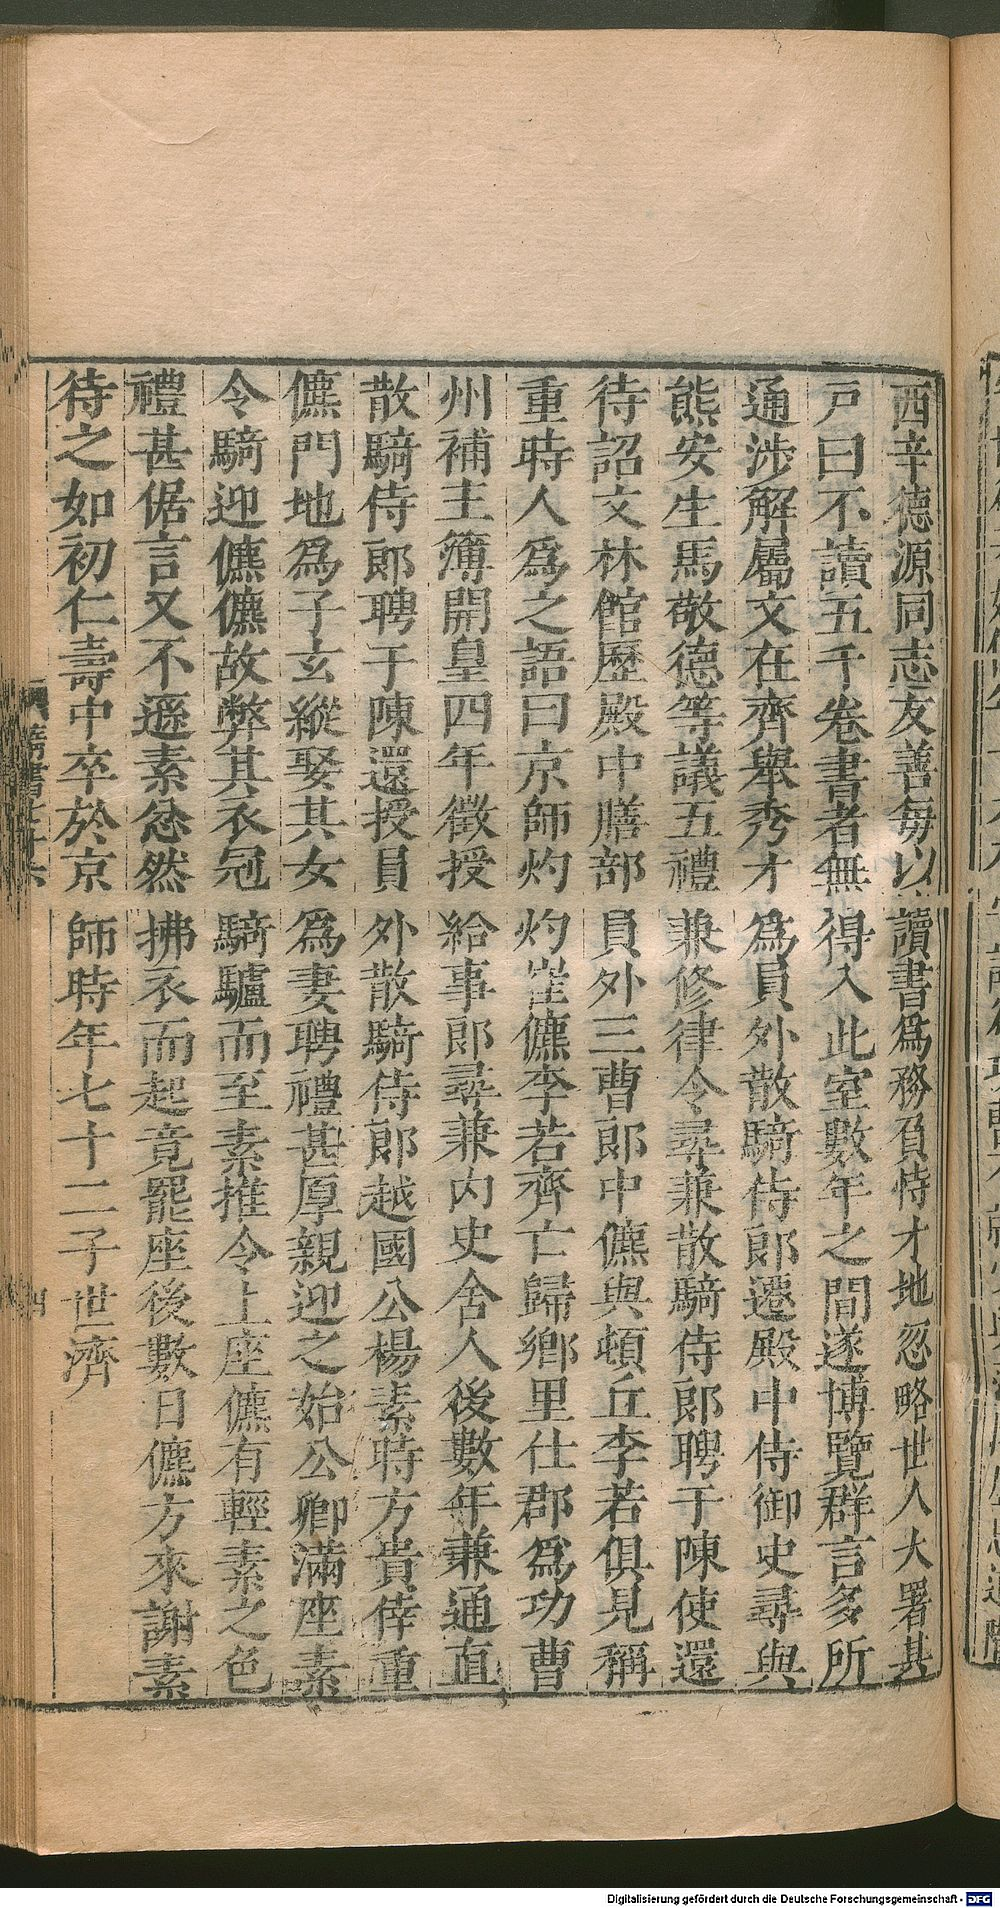 西辛德源同志友善每以讀書爲務負恃才地忽略世人大署其
戸曰不讀五千卷書者無得入此室數年之間遂博覽群言多所
通涉解屬文在齊舉秀才爲員外散騎侍郎遷殿中侍御史尋與
熊安生馬敬德等議五禮兼修律令尋兼散騎侍郎聘于陳使還
待詔文林館歷殿中膳部員外三曹郎中儦與頓丘李若俱見稱
重時人爲之語曰京師灼灼崔儦李若齊亡歸鄉里仕郡爲功曹
州補主簿開皇四年徵授給事郎尋兼内史舍人後數年兼通直
散騎侍郎聘于陳還授員外散騎侍郎越國公楊素時方貴倖重
儦門地爲子玄縱娶其女爲妻聘禮甚厚親迎之始公卿滿座素
令騎迎儦儦故弊其衣冠騎驢而至素推令上座儦有輕素之色
禮甚倨言又不遜素忿然拂衣而起竟罷座後數日儦方來謝素
待之如初仁壽中卒於京師時年七十二子世濟
四
Digitalisierung gefördert durch die Deutsche Forschungsgemeinschaft - DFG